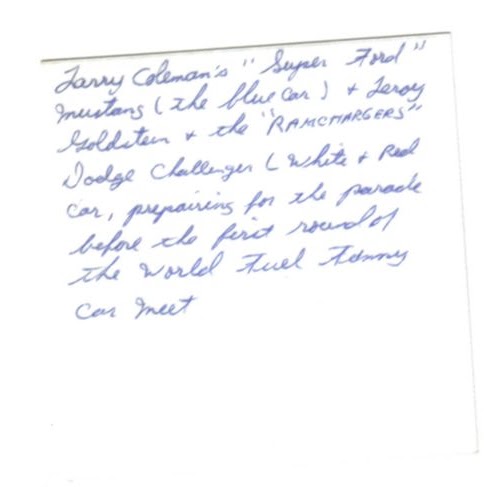 Larry Coleman's "Super Ford"
Mustang (the blue car) + Leroy
Goldstein + the "RAMCHARGERS"
Dodge Challenger (White + Red
Car, prepairing for the parade
before the first round of
the World Fuel Funny
Car Meet